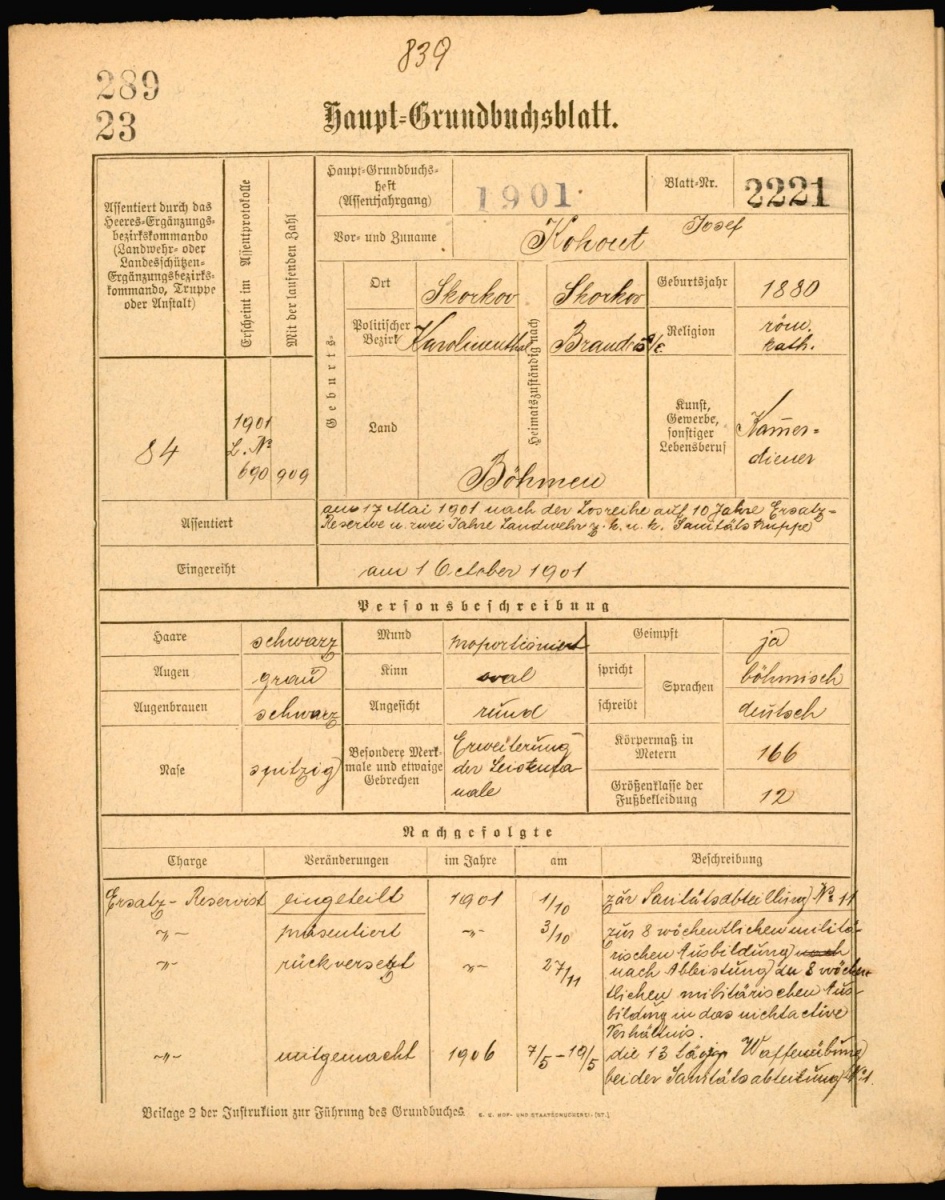 839
289
23
Haupt-Grundbuchsblatt.
Assentiert durch das
Heeres-Ergänzungs-
bezirkskommando
(Landwehr- oder
Landesschützen-
Ergänzungsbezirks-
kommando, Truppe
oder Anstalt)
Erscheint im Assentprotokolle
Mit der laufenden Zahl
Haupt-Grundbuchs-
heft
(Assentjahrgang)
1901.
Blatt-Nr.
2221
Vor- und Zuname
Kohout Josef
Geburts-
Ort
Skorkov
Heimatszuständig nach
Skorkov
Geburtsjahr
1880
Politischer
Bezirk
Karolinenthal
Brandeis a/E.
Religion
röm.
kath.
84
1901
L. No
690 909
Land
Böhmen
Kunst,
Gewerbe,
sonstiger
Lebensberuf
Kam̄er=
diener
Assentiert
am 17 Mai 1901 nach der Losreihe auf 10 Jahre Ersatz=
Reserve u. zwei Jahre Landwehr z. k. u. k. Sanitätstruppe
Eingereiht
am 1 October 1901
Personsbeschreibung
Haare
schwarz
Mund
proportioniert
Geimpft
ja
Augen
grau
Kinn
oval
spricht
Sprachen
böhmisch
Augenbrauen
schwarz
Angesicht
rund
schreibt
deutsch
Nase
spitzig
Besondere Merk-
male und etwaige
Gebrechen
Erweiterung
der Leistenka-
nale
Körpermaß in
Metern
166
Größenklasse der
Fußbekleidung
12
Nachgefolgte
Charge
Veränderungen
im Jahre
am
Beschreibung
Ersatz- Reservist eingeteilt 1901 1/10 zur Sanitätsabteilung No 11
-"- präsentiert -"- 3/10 zur 8 wöchentlichen militä-
rischen Ausbildung nach
-"- rückversetzt -"- 27/11 nach Ableistung der 8 wöchen-
tlichen militärischen Aus-
bildung in das nichtactive
Verhältnis.
-"- mitgemacht 1906 7/5-19/5 die 13 tägige Waffenübung
bei der Sanitätsabteilung No 11.
Beilage 2 der Instruktion zur Führung des Grundbuches.
K. K. HOF- UND STAATSDRUCKEREI. [ST.]